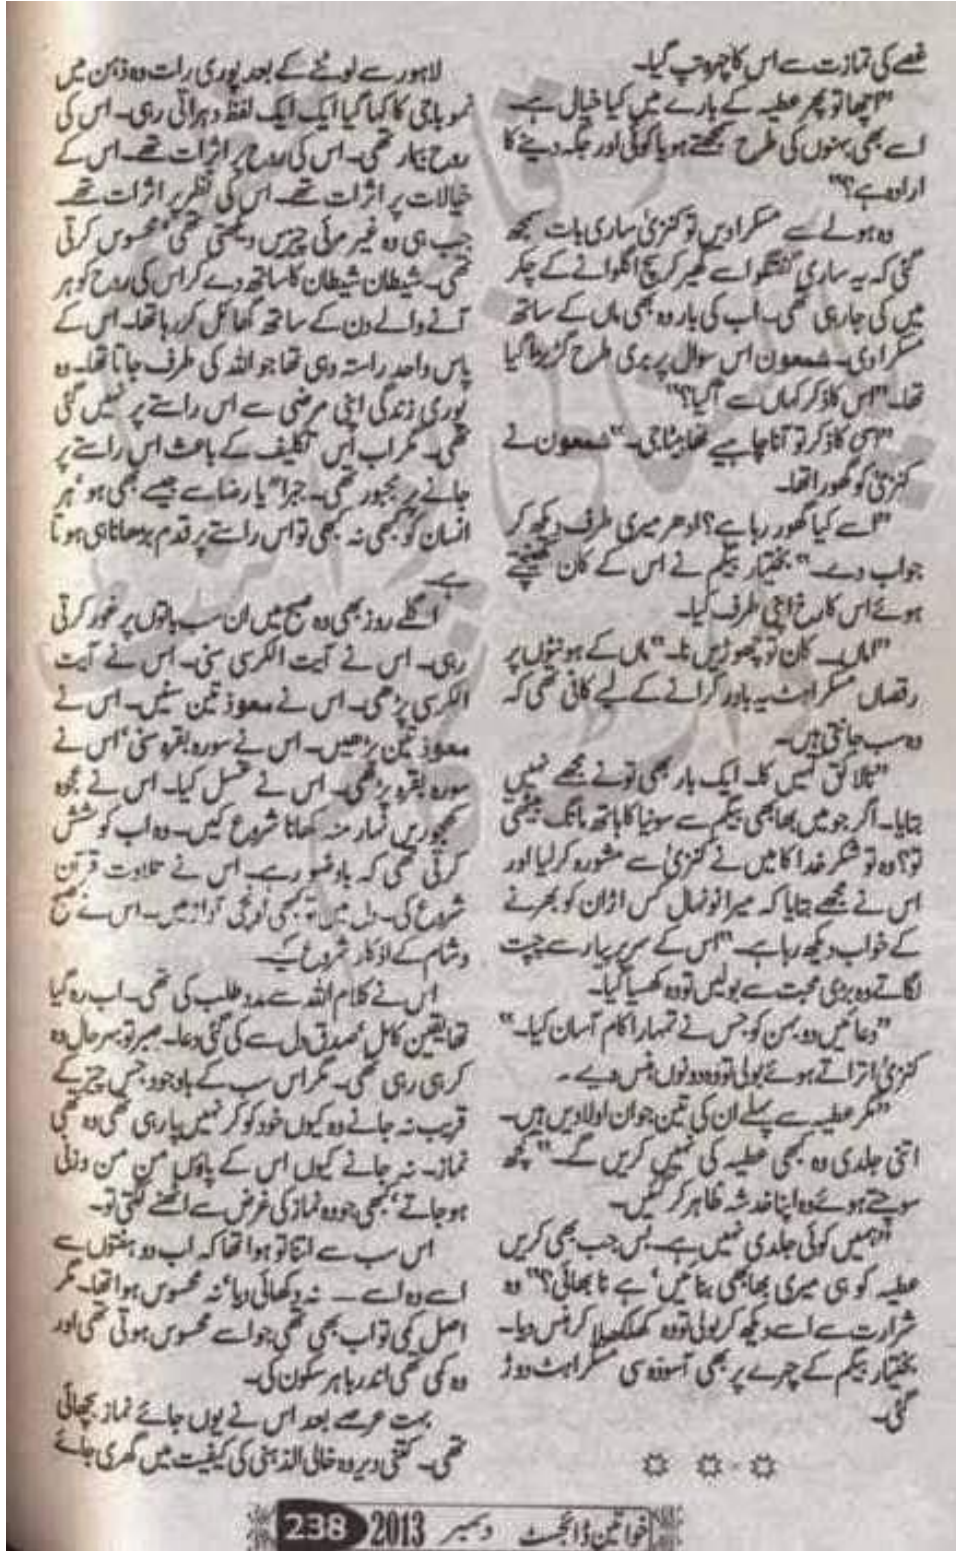 غصے کی تمازت سے اس کا چہرہ تپ گیا۔
"اچھا تو پھر عطیہ کے بارے میں کیا خیال ہے۔
اسے بھی بہنوں کی طرح سمجھتے ہو یا کوئی اور جگہ دینے کا
ارادہ ہے؟"
وہ ہولے سے مسکرادیں تو کنزیٰ ساری بات سمجھ
گئی کہ یہ ساری گفتگو اسے گھیر کر سچ اگلوانے کے چکر
میں کی جارہی تھی۔ اب کی بار وہ بھی ماں کے ساتھ
مسکرا دی۔ شمعون اس سوال پر بری طرح گڑبڑا گیا
تھا۔ "اس کا ذکر کہاں سے آگیا؟"
"اسی کا ذکر تو آنا چاہیے تھا بیٹا جی۔" شمعون نے
کنزیٰ کو گھورا تھا۔
"اسے کیا گھور رہا ہے؟ ادھر میری طرف دیکھ کر
جواب دے۔" بختیار بیگم نے اس کے کان کھینچتے
ہوئے اس کا رخ اپنی طرف کیا۔
"اماں۔ کان تو چھوڑیں نا۔" ماں کے ہونٹوں پر
رقصاں مسکراہٹ یہ باور کرانے کے لیے کافی تھی کہ
وہ سب جانتی ہیں۔
"نالائق کہیں کا۔ ایک بار بھی تو نے مجھے نہیں
بتایا۔ اگر جو میں بھابھی بیگم سے سونیا کا ہاتھ مانگ بیٹھتی
تو؟ وہ تو شکر خدا کا میں نے کنزیٰ سے مشورہ کرلیا اور
اس نے مجھے بتایا کہ میرا نونہال کس اڑان کو بھرنے
کے خواب دیکھ رہا ہے۔" اس کے سر پر پیار سے چپت
لگاتے وہ بڑی محبت سے بولیں تو وہ کھسیا گیا۔
"دعائیں دو بہن کو جس نے تمہارا کام آسان کیا۔"
کنزیٰ اتراتے ہوئے بولی تو وہ دونوں ہنس دیے۔
"مگر عطیہ سے پہلے ان کی تین جوان اولادیں ہیں۔
اتنی جلدی وہ کبھی عطیہ کی نہیں کریں گے۔" کچھ
سوچتے ہوئے وہ اپنا خدشہ ظاہر کر گئیں۔
"ہمیں کوئی جلدی نہیں ہے۔ بس جب بھی کریں
عطیہ کو ہی میری بھابھی بنائیں، ہے نا بھائی؟" وہ
شرارت سے اسے دیکھ کر بولی تو وہ کھلکھلا کر ہنس دیا۔
بختیار بیگم کے چہرے پر بھی آسودہ سی مسکراہٹ دوڑ
گئی۔
لاہور سے لوٹنے کے بعد پوری رات وہ ذہن میں
نمو باجی کا کہا گیا ایک ایک لفظ دہراتی رہی۔ اس کی
روح بیمار تھی۔ اس کی روح پر اثرات تھے۔ اس کے
خیالات پر اثرات تھے۔ اس کی نظر پر اثرات تھے
جب ہی وہ غیر مرئی چیزیں دیکھتی تھی، محسوس کرتی
تھی۔ شیطان شیطان کا ساتھ دے کر اس کی روح کو ہر
آنے والے دن کے ساتھ گھائل کر رہا تھا۔ اس کے
پاس واحد راستہ وہی تھا جو اللہ کی طرف جاتا تھا۔ وہ
پوری زندگی اپنی مرضی سے اس راستے پر نہیں گئی
تھی۔ مگر اب اس تکلیف کے باعث اس راستے پر
جانے پر مجبور تھی۔ جبراً یا رضا سے جیسے بھی ہو، ہر
انسان کو کبھی نہ کبھی تو اس راستے پر قدم بڑھانا ہی ہوتا
ہے۔
اگلے روز بھی وہ صبح میں ان سب باتوں پر غور کرتی
رہی۔ اس نے آیت الکرسی سنی۔ اس نے آیت
الکرسی پڑھی۔ اس نے معوذتین سنیں۔ اس نے
معوذتین پڑھیں۔ اس نے سورہ بقرہ سنی، اس نے
سورہ بقرہ پڑھی۔ اس نے غسل کیا۔ اس نے عجوہ
کھجوریں نہار منہ کھانا شروع کیں۔ وہ اب کوشش
کرتی تھی کہ باوضو رہے۔ اس نے تلاوت قرآن
شروع کی۔ دل میں تو کبھی اونچی آواز میں۔ اس نے صبح
و شام کے اذکار شروع کیے۔
اس نے کلام اللہ سے مدد طلب کی تھی۔ اب رہ گیا
تھا یقین کامل، صدق دل سے کی گئی دعا۔ صبر تو بہرحال وہ
کر ہی رہی تھی۔ مگر اس سب کے باوجود جس چیز کے
قریب نہ جانے وہ کیوں خود کو کر نہیں پا رہی تھی وہ تھی
نماز۔ نہ جانے کیوں اس کے پاؤں من من وزنی
ہو جاتے، کبھی جو وہ نماز کی غرض سے اٹھنے لگتی تو۔
اس سب سے اتنا تو ہوا تھا کہ اب دو ہفتوں سے
اسے وہ اسے ــــ نہ دکھائی دیا، نہ محسوس ہوا تھا۔ مگر
اصل کمی تو اب بھی تھی جو اسے محسوس ہوتی تھی اور
وہ کمی تھی اندر باہر سکون کی۔
بہت عرصے بعد اس نے یوں جائے نماز بچھائی
تھی۔ کتنی دیر وہ خالی الذہنی کی کیفیت میں گھری جائے
خواتین ڈائجسٹ دسمبر 2013 238